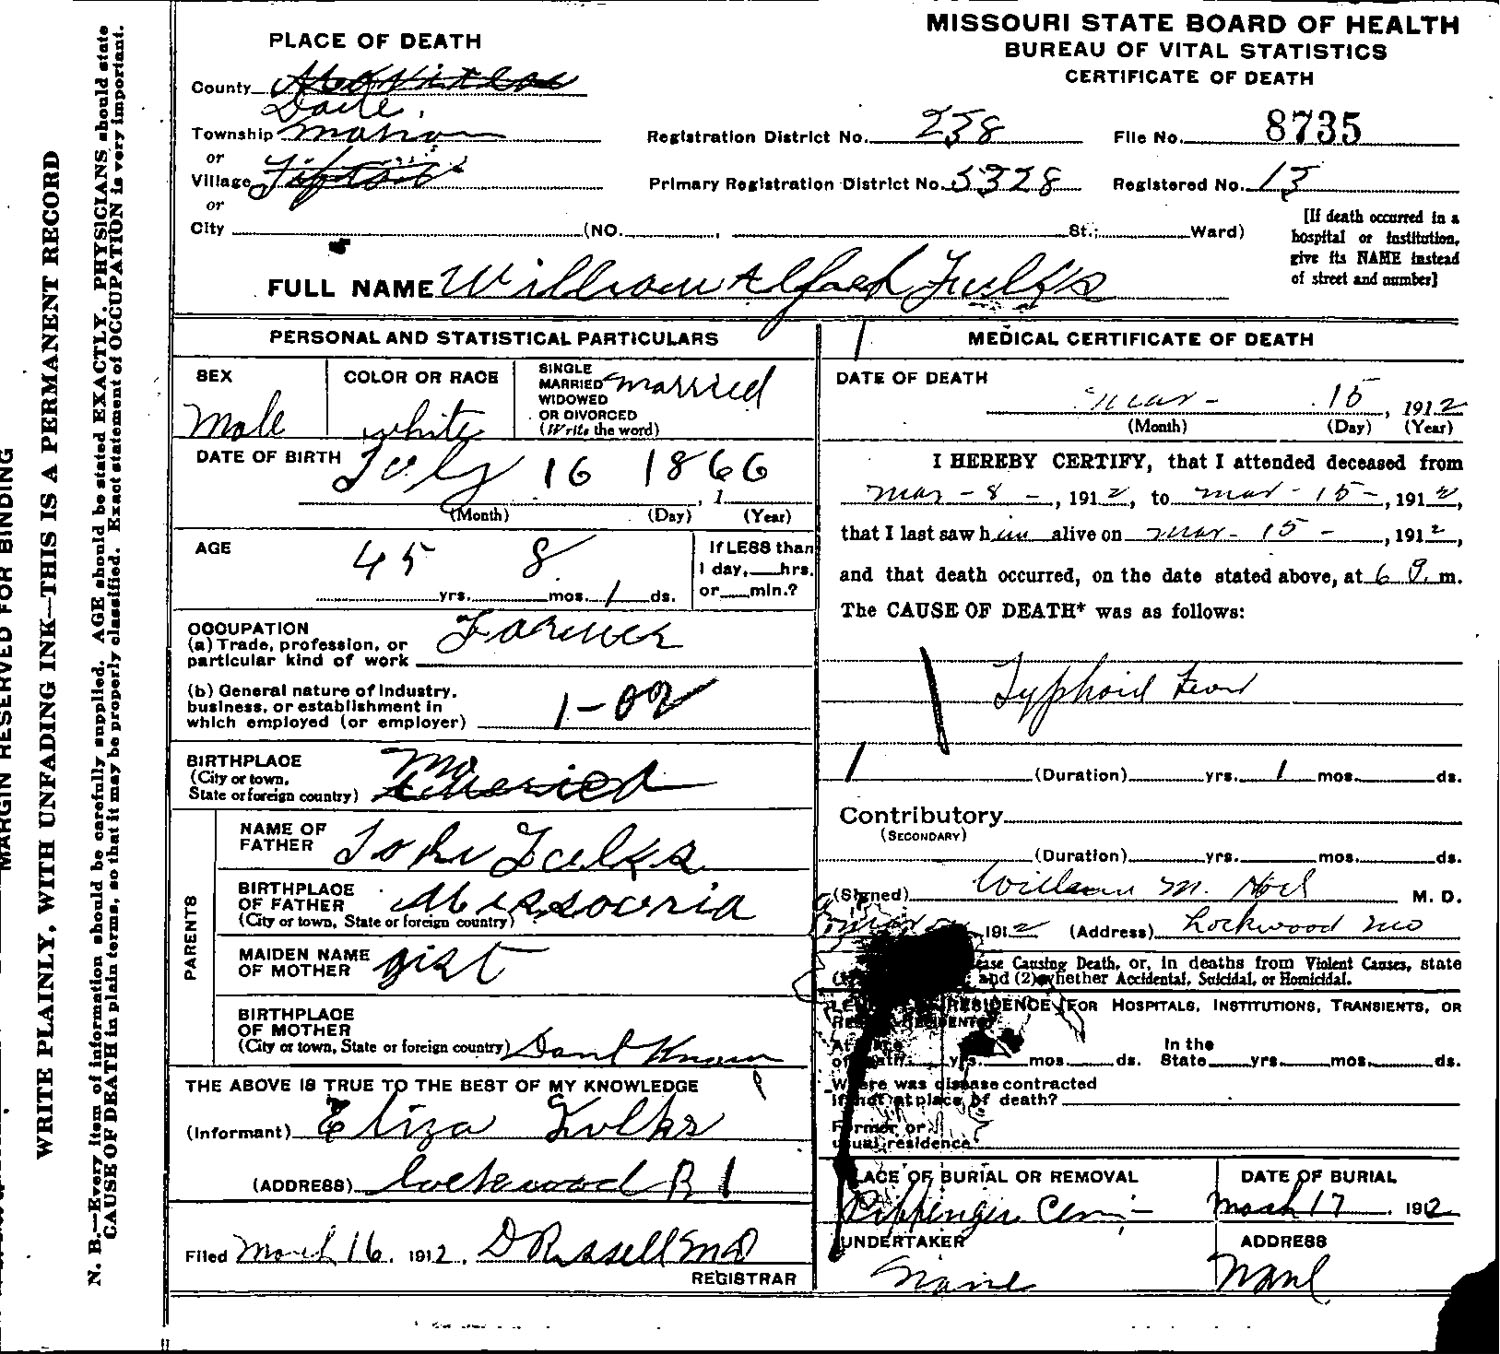 MISSOURI STATE BOARD OF HEALTH
BUREAU OF VITAL STATISTICS
CERTIFICATE OF DEATH
PLACE OF DEATH
County
Dade
Township Marion
or
Village
or
City (NO. , St.; Ward)
Registration District No. 238 File No. 8735
Primary Registration District No. 5328 Registered No. 13
[If death occurred in a
hospital or institution,
give its NAME instead
of street and number]
FULL NAME William Alfred Fulks
PERSONAL AND STATISTICAL PARTICULARS
SEX
Male
COLOR OR RACE
white
SINGLE
MARRIED married
WIDOWED
OR DIVORCED
(Write the word)
DATE OF BIRTH July 16 1866
, 1
(Month) (Day) (Year)
AGE 45 8
yrs. mos. 1 ds.
If LESS than
1 day, hrs.
or min.?
OCCUPATION
(a) Trade, profession, or
particular kind of work Farmer
(b) General nature of industry,
business, or establishment in
which employed (or employer) 1-02
BIRTHPLACE
(City or town,
State or foreign country) Mo
PARENTS
NAME OF
FATHER John Fulks
BIRTHPLACE
OF FATHER Missouria
(City or town, State or foreign country)
MAIDEN NAME
OF MOTHER gist
BIRTHPLACE
OF MOTHER
(City or town, State or foreign country) Dant Know
THE ABOVE IS TRUE TO THE BEST OF MY KNOWLEDGE
(Informant) Eliza Fulks
(ADDRESS) Lockwood R 1
Filed March 16, 1912, D Russell MD
REGISTRAR
MEDICAL CERTIFICATE OF DEATH
DATE OF DEATH
mar - 15, 1912
(Month) (Day) (Year)
I HEREBY CERTIFY, that I attended deceased from
mar - 8 -, 1912, to mar - 15 -, 1912,
that I last saw him alive on mar - 15 -, 1912,
and that death occurred, on the date stated above, at 6 m.
The CAUSE OF DEATH* was as follows:
Typhoid Fever
(Duration) yrs. 1 mos. ds.
Contributory
(SECONDARY)
(Duration) yrs. mos. ds.
(Signed) William M. M. D.
1912 (Address) Lockwood Mo
Causing Death, or, in deaths from Violent Causes, state
and (2) whether Accidental, Suicidal, or Homicidal.
RESIDENCE (FOR HOSPITALS, INSTITUTIONS, TRANSIENTS, OR
yrs. mos. ds. In the
State yrs. mos. ds.
Where was disease contracted
if not at place of death?
Former or
usual residence
PLACE OF BURIAL OR REMOVAL
Pippenger Cem -
DATE OF BURIAL
March 17, 1912
UNDERTAKER
None
ADDRESS
None
MARGIN RESERVED FOR BINDING
WRITE PLAINLY, WITH UNFADING INK—THIS IS A PERMANENT RECORD
N. B.—Every item of information should be carefully supplied. AGE should be stated EXACTLY. PHYSICIANS should state
CAUSE OF DEATH in plain terms, so that it may be properly classified. Exact statement of OCCUPATION is very important.